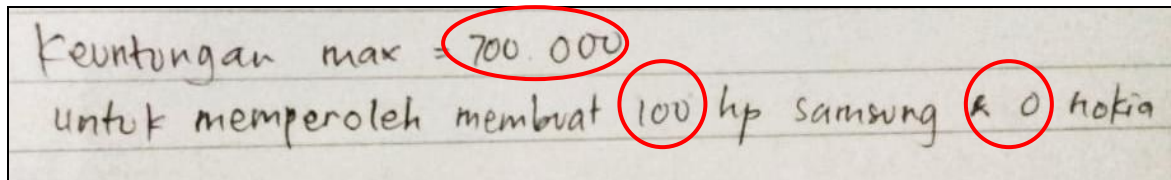 Keuntungan max = 700.000
untuk memperoleh membuat 100 hp samsung & 0 nokia